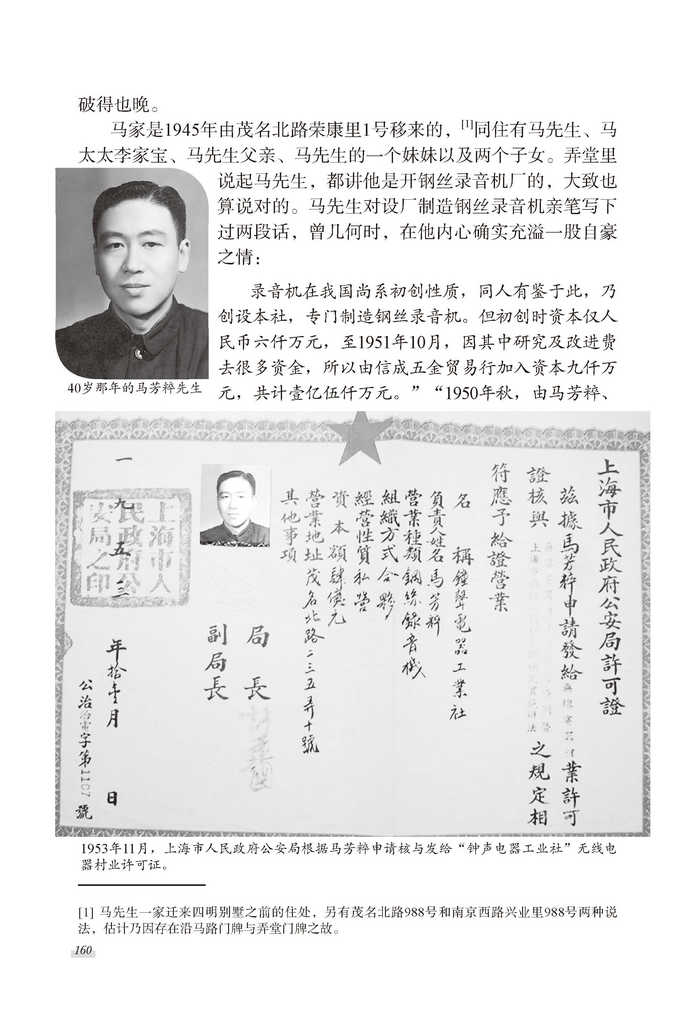 破得也晚。
马家是1945年由茂名北路荣康里1号移来的，[1]同住有马先生、马
太太李家宝、马先生父亲、马先生的一个妹妹以及两个子女。弄堂里
说起马先生，都讲他是开钢丝录音机厂的，大致也
算说对的。马先生对设厂制造钢丝录音机亲笔写下
过两段话，曾几何时，在他内心确实充溢一股自豪
之情：
录音机在我国尚系初创性质，同人有鉴于此，乃
创设本社，专门制造钢丝录音机。但初创时资本仅人
民币六仟万元，至1951年10月，因其中研究及改进费
去很多资金，所以由信成五金贸易行加入资本九仟万
元，共计壹亿伍仟万元。”“1950年秋，由马芳粹、
40岁那年的马芳粹先生
上海市人民政府公安局許可證
茲據馬芳粹申請發給
業許可
證核與
之規定相
符應予給證營業
名 稱鐘聲電器工業社
負責人姓名馬芳粹
營業種類鋼絲錄音機
組織方式合夥
經營性質私營
資本額肆億元
營業地址茂名北路二三五弄十號
其他事項
局 長
副局長
上海市人
民政府公
安局之印
一九五三年拾壹月 日
公治 字第1107號
1953年11月，上海市人民政府公安局根据马芳粹申请核与发给“钟声电器工业社”无线电
器村业许可证。
[1] 马先生一家迁来四明别墅之前的住处，另有茂名北路988号和南京西路兴业里988号两种说
法，估计乃因存在沿马路门牌与弄堂门牌之故。
160